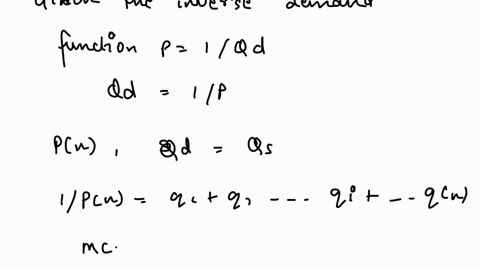 given the inverse demand
function P = 1/Qd
Qd = 1/P
P(n), Qd = Qs
1/P(n) = q1 + q2 --- qi + -- q(n)
MC.